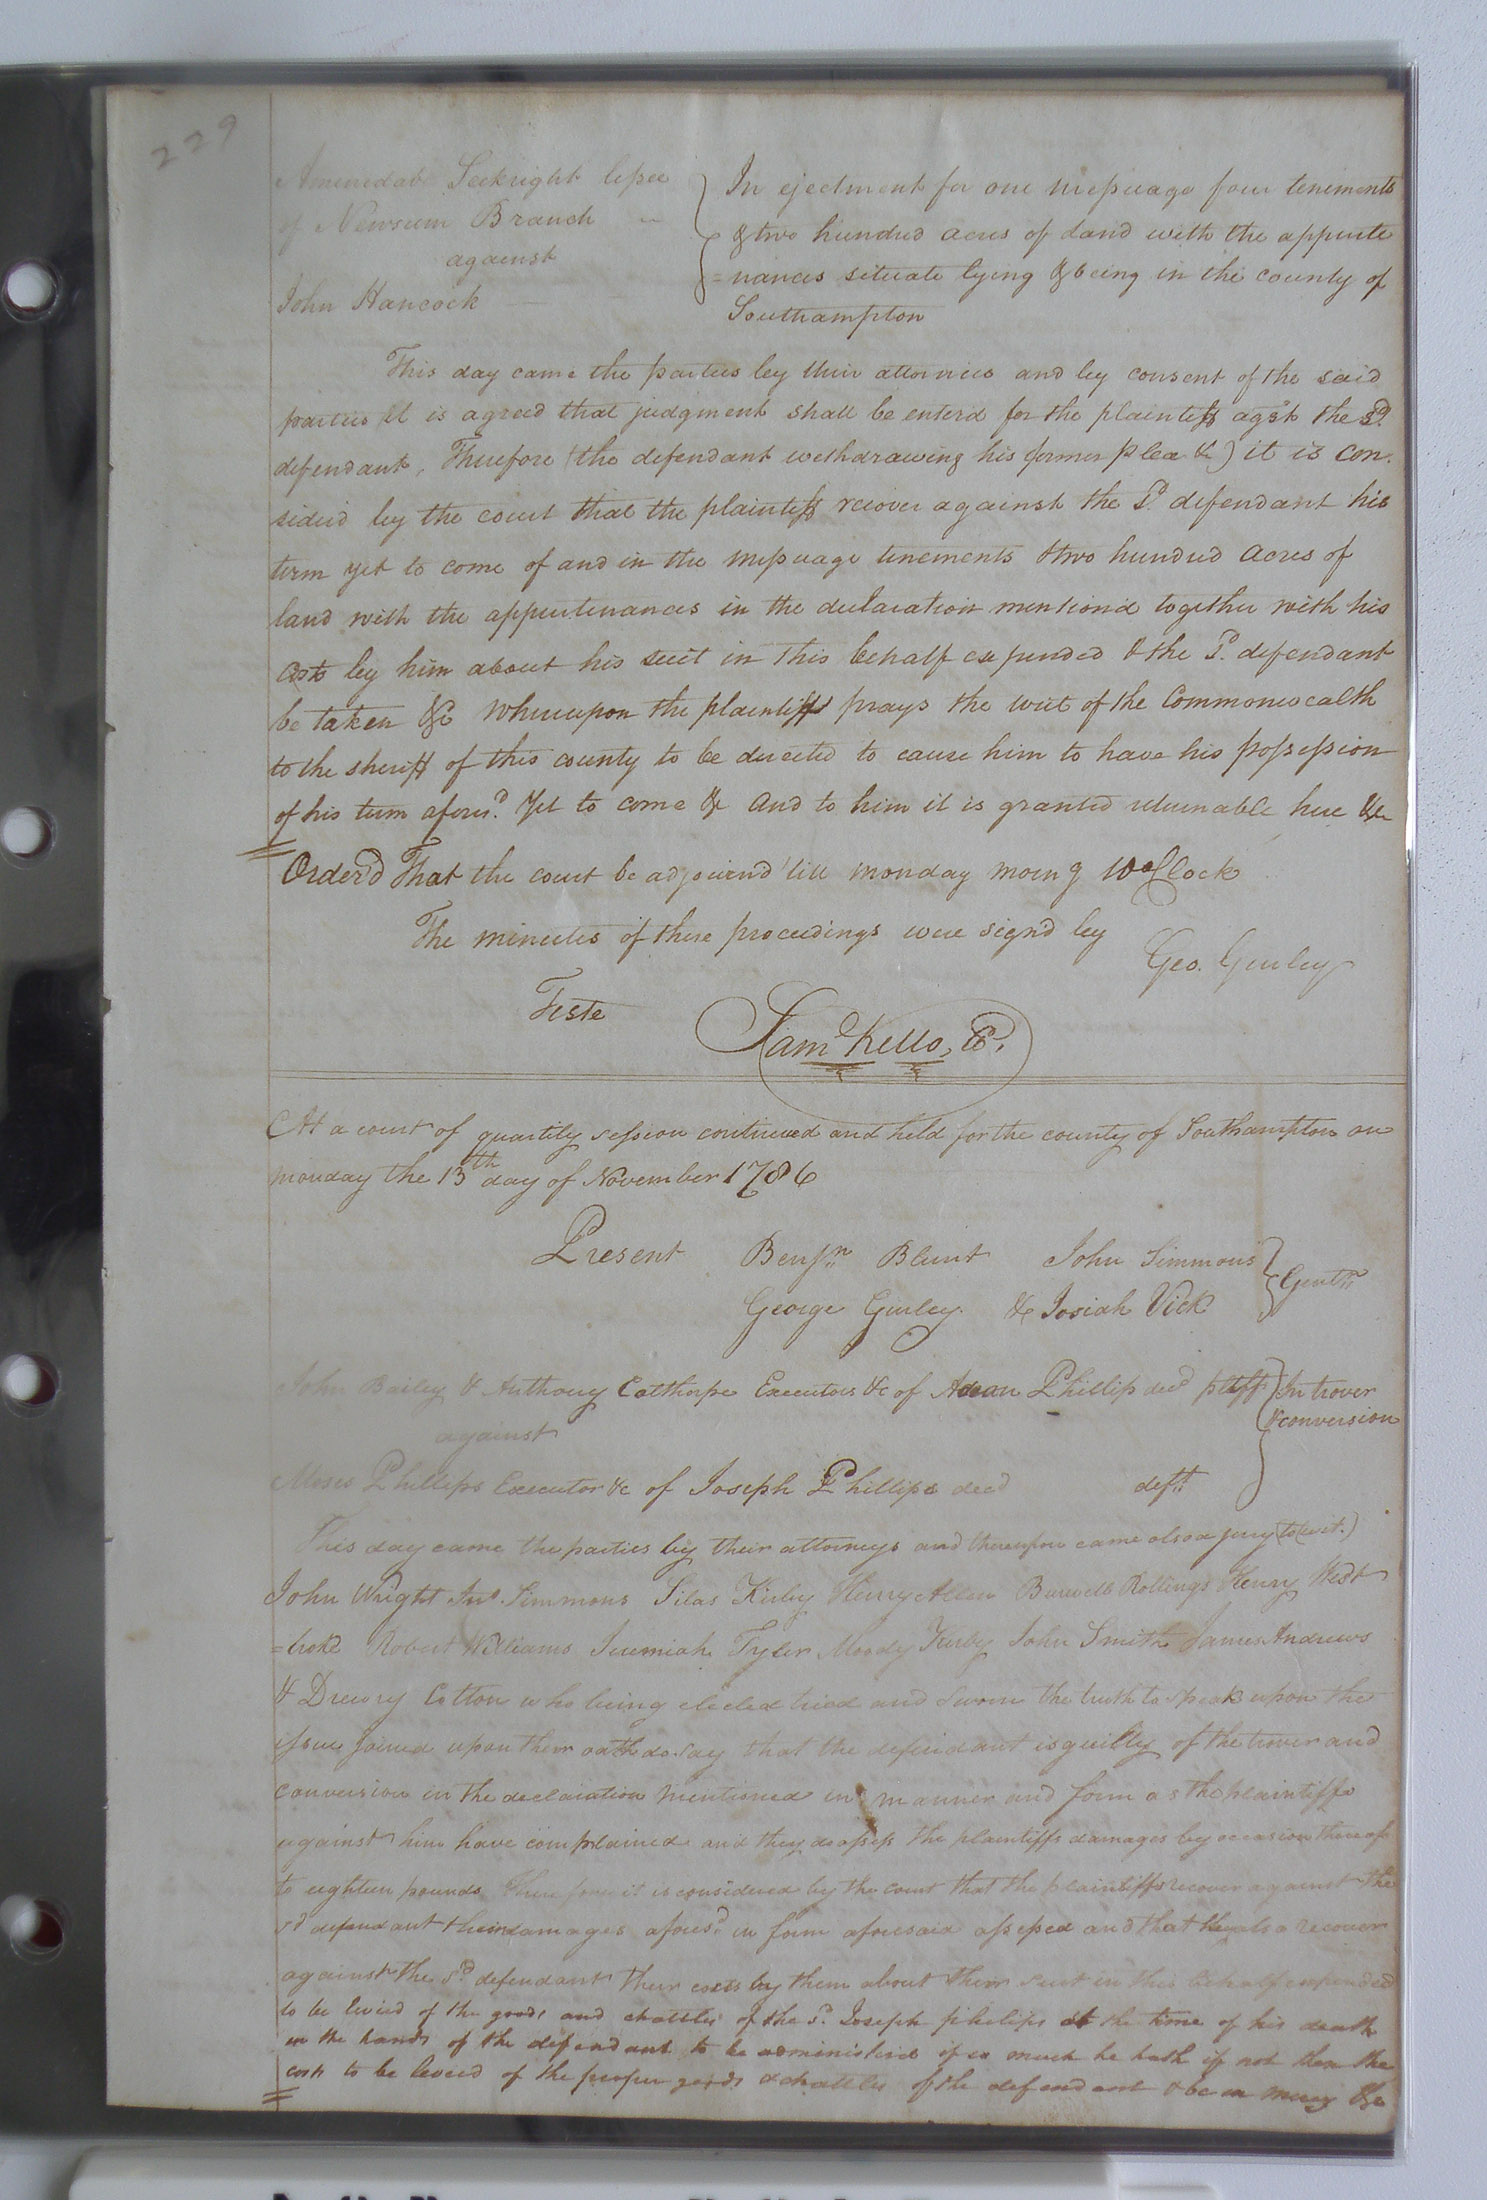 229
Aminidab Seekright lessee
of Newsum Branch
against
John Hancock
In ejectment for one messuage four tenements
& two hundred acres of land with the appurte
=nances situate lying & being in the county of
Southampton
This day came the parties by their attornies and by consent of the said
parties it is agreed that judgment shall be enterd for the plaintiff agst the sd.
defendant, Therefore (the defendant withdrawing his former plea &c) it is con-
siderd by the court that the plaintiff recover against the sd. defendant his
term yet to come of and in the messuage tenements & two hundred acres of
land with the appurtenances in the declaration mentiond together with his
costs by him about his suit in this behalf expended & the sd. defendant
be taken &c Whereupon the plaintiff prays the writ of the Commonwealth
to the sheriff of this county to be directed to cause him to have his possession
of his term aforesd. yet to come &c and to him it is granted returnable here &c
Order'd That the court be adjournd 'till monday morng 10 oClock
The minutes of these proceedings were sign'd by
Geo. Gurley
Teste
Saml Kello, C.
At a court of quarterly session continued and held for the county of Southampton on
monday the 13th day of November 1786
Present Benjn. Blunt John Simmons
George Gurley & Josiah Vick
Gentn.
John Bailey & Anthony Calthorpe Executors &c of Adam Phillips decd pltffs
In trover
& conversion
against
Moses Phillips Executor &c of Joseph Phillips decd deft.
This day came the parties by their attorneys and thereupon came also a jury (to wit.)
John Wright Jno. Simmons Silas Kirby Henry Allen Burwell Rollings Henry West
=broke Robert Williams Jeremiah Tyler Moody Kirby John Smith James Andrews
& Drewry Cotton who being elected tried and sworn the truth to speak upon the
issue joined upon their oath do say that the defendant is guilty of the trover and
conversion in the declaration mentioned in manner and form as the plaintiffs
against him have complained and they do assess the plaintiffs damages by occasion thereof
to eighteen pounds Therefore it is considered by the court that the plaintiffs recover against the
sd defendant their damages aforesd. in form aforesaid assessed and that they also recover
against the sd defendant their costs by them about their suit in this behalf expended
to be levied of the goods and chattles of the sd. Joseph philips at the time of his death
in the hands of the defendant to be administerd if so much he hath if not then the
costs to be levied of the proper goods & chattles of the defendant & be in mercy &c